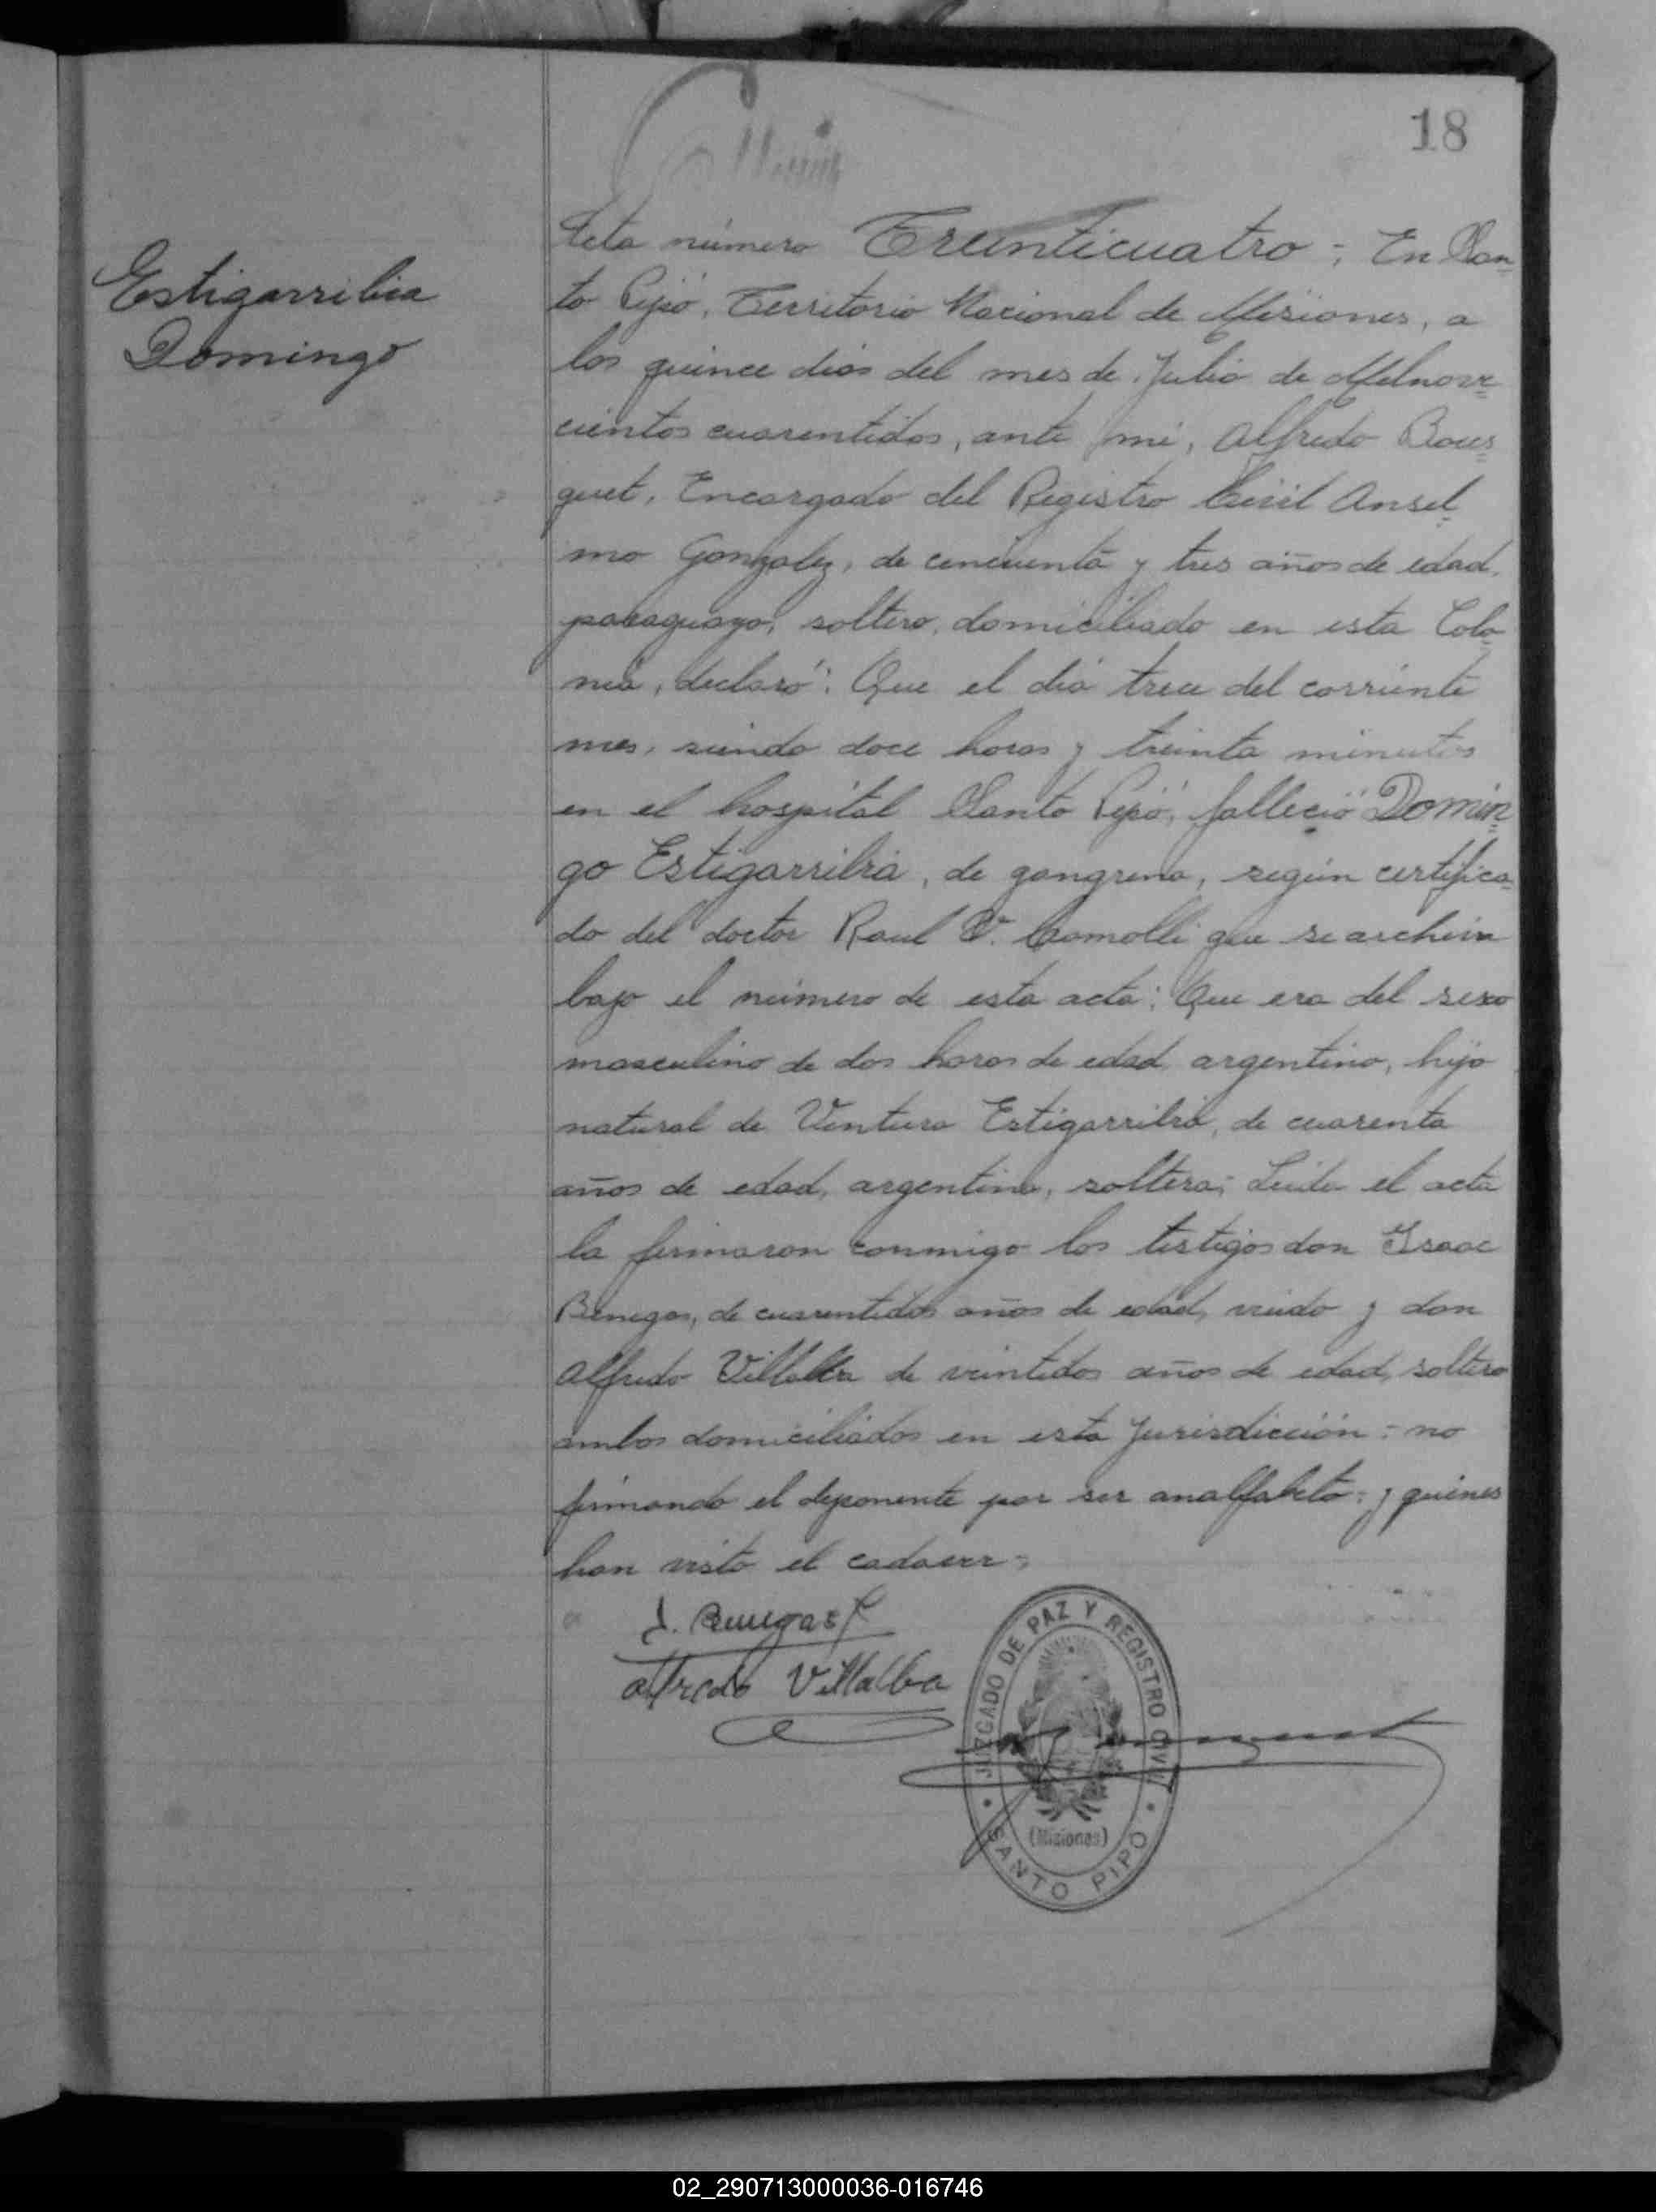 18
Estigarribia
Domingo
Acta número Treinticuatro; En San-
to Pipó, Territorio Nacional de Misiones, a
los quince dias del mes de Julio de Milnove-
cientos cuarentidos, ante mi, Alfredo Bous-
quet, Encargado del Registro Civil Ansel-
mo Gonzalez, de cincuenta y tres años de edad,
paraguayo, soltero, domiciliado en esta Colo-
nia, declaró: Que el día trece del corriente
mes, siendo doce horas y treinta minutos
en el hospital Santo Pipó, falleció Domin-
go Estigarribia, de gangrena, según certifica-
do del doctor Raul V. Comolli que se archiva
bajo el número de esta acta: Que era del sexo
masculino de dos horas de edad, argentino, hijo
natural de Ventura Estigarribia, de cuarenta
años de edad, argentina, soltera; Leida el acta
la firmaron conmigo los testigos don Isaac
Benegas, de cuarentidos años de edad, viudo y don
Alfredo Villalba de veintidos años de edad, soltero
ambos domiciliados en esta Jurisdicción; no
firmando el deponente por ser analfabeto; y quienes
han visto el cadaver;
I. Benegas
Alfredo Villalba
JUZGADO DE PAZ Y REGISTRO CIVIL
(Misiones)
SANTO PIPÓ
02_290713000036-016746